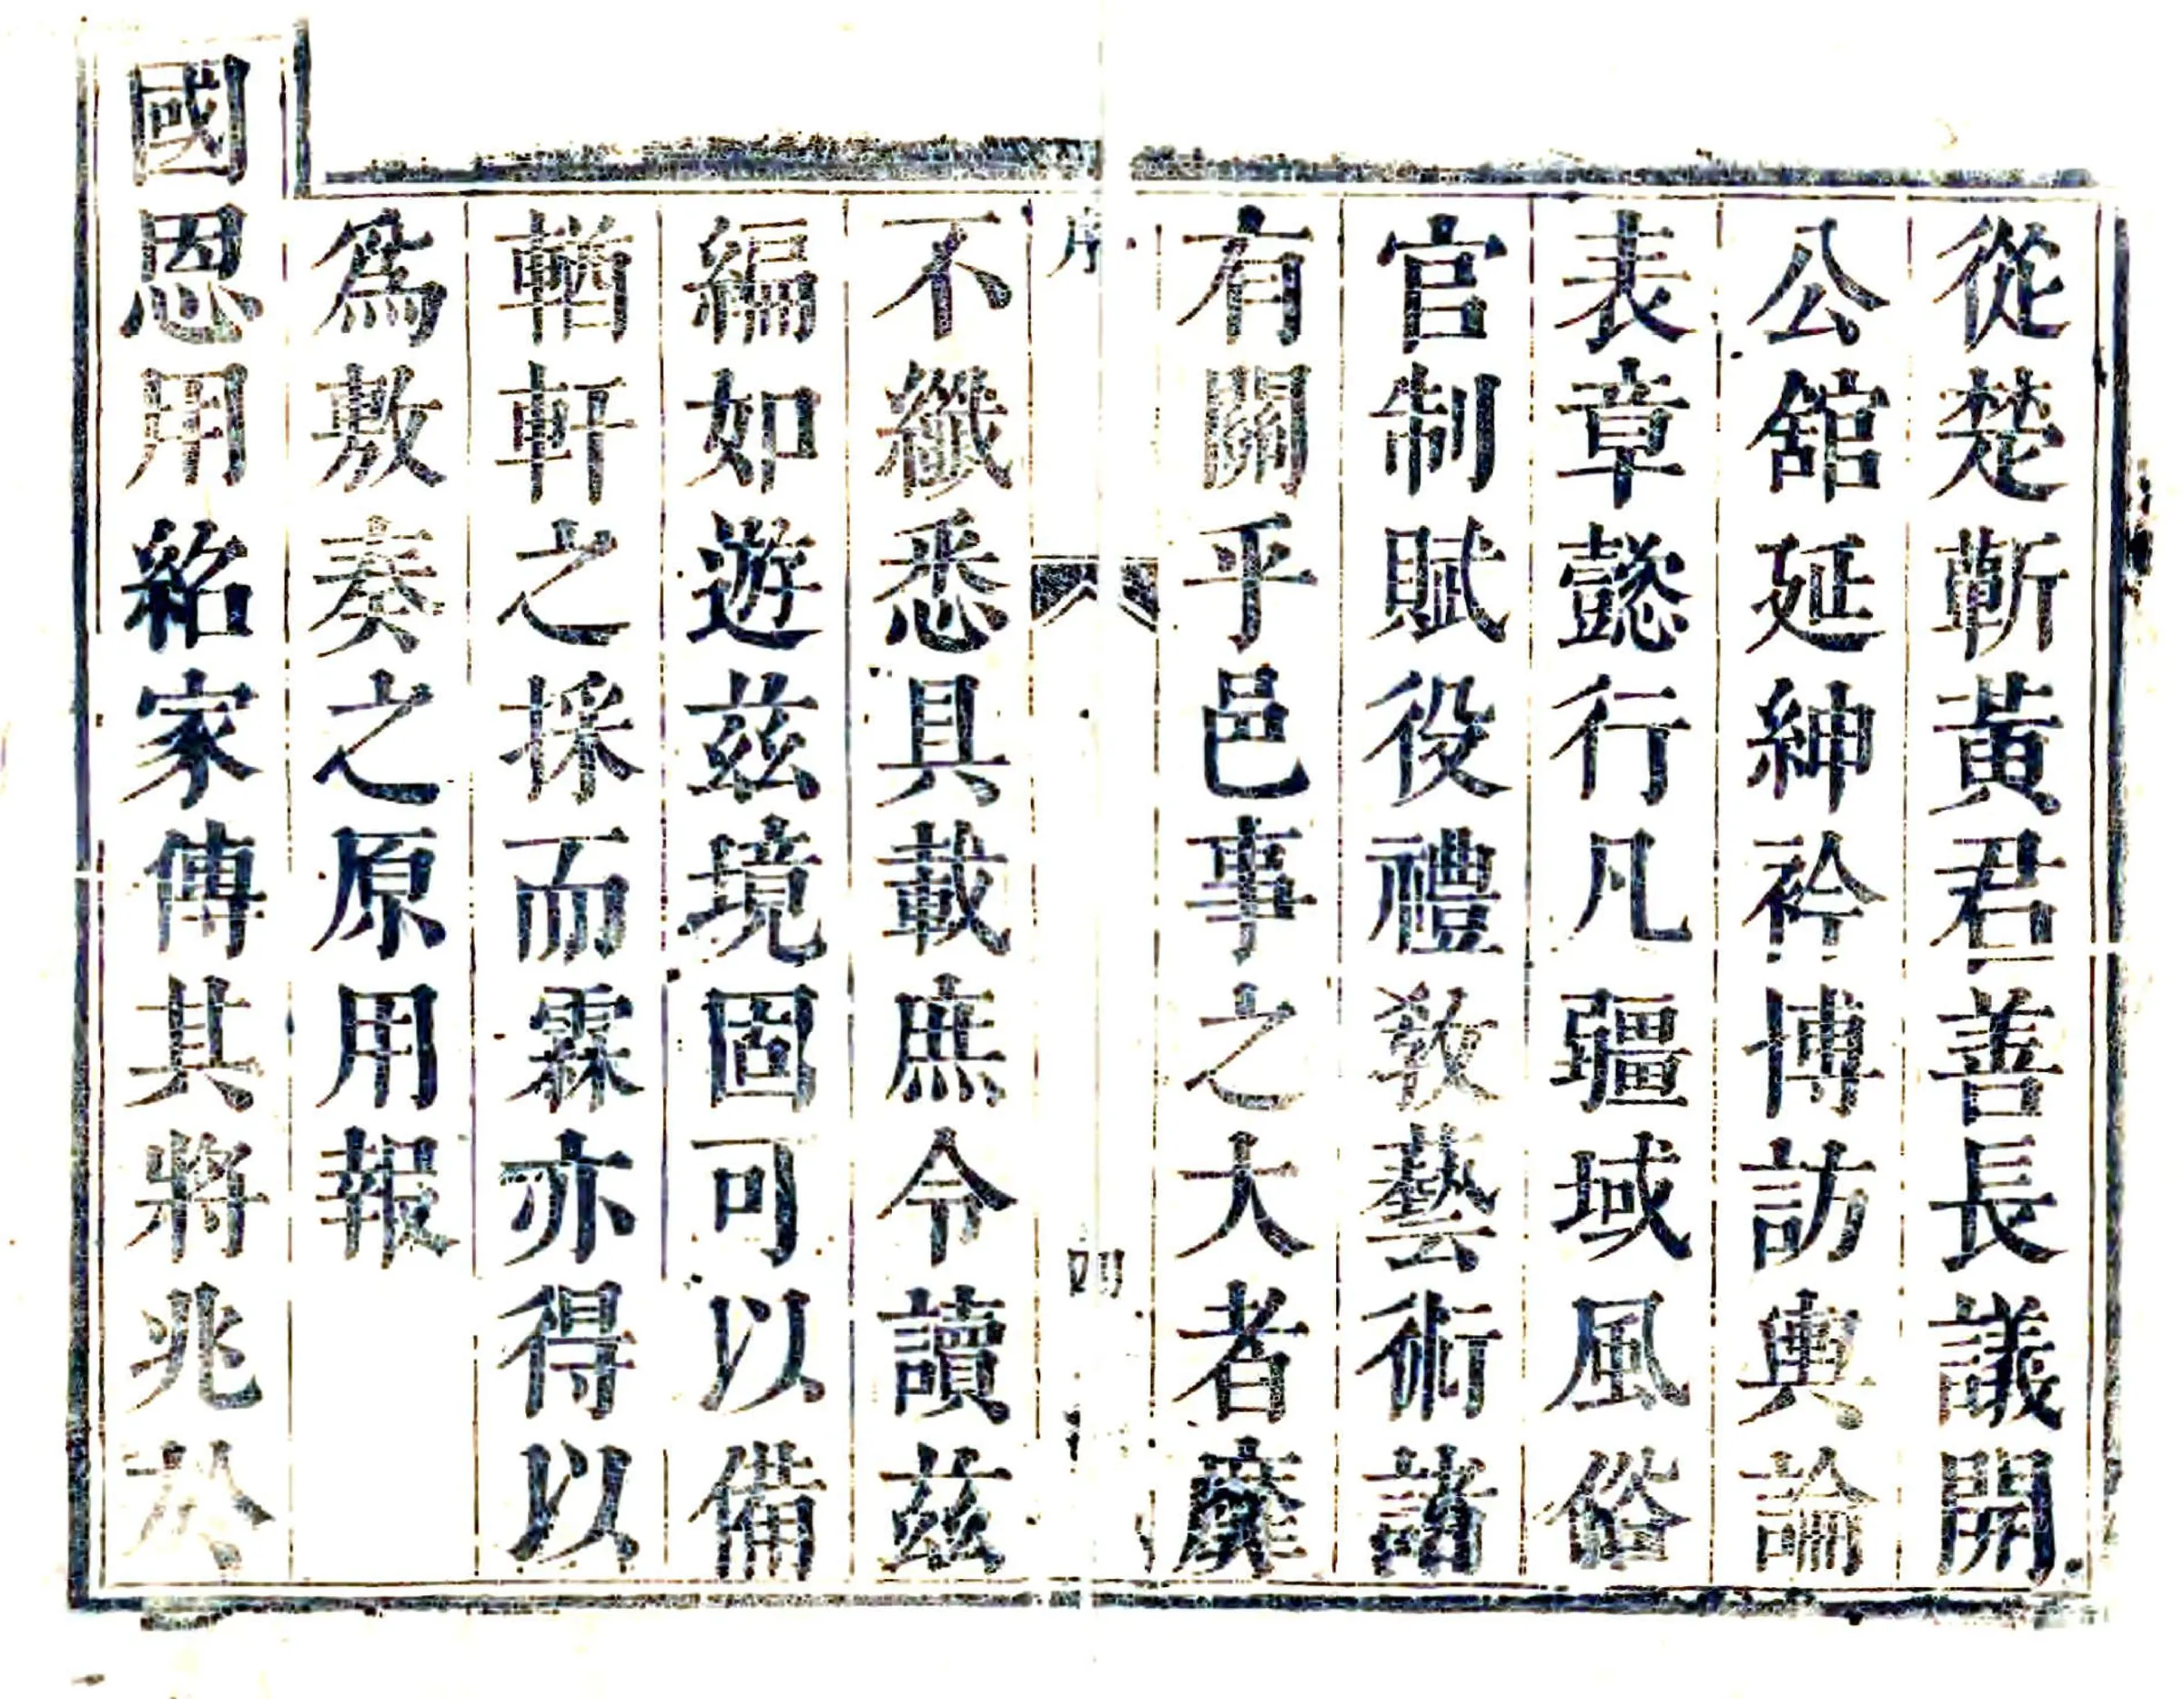 從楚蘄黃君善長議開
公舘延紳衿博訪輿論
表章懿行凡疆域風俗
官制賦役禮教藝術諸
有關乎邑事之大者靡
序
四
不纖悉具載庶令讀茲
編如遊茲境固可以備
輶軒之採而霖亦得以
爲敷奏之原用報
國恩用紹家傳其將兆於